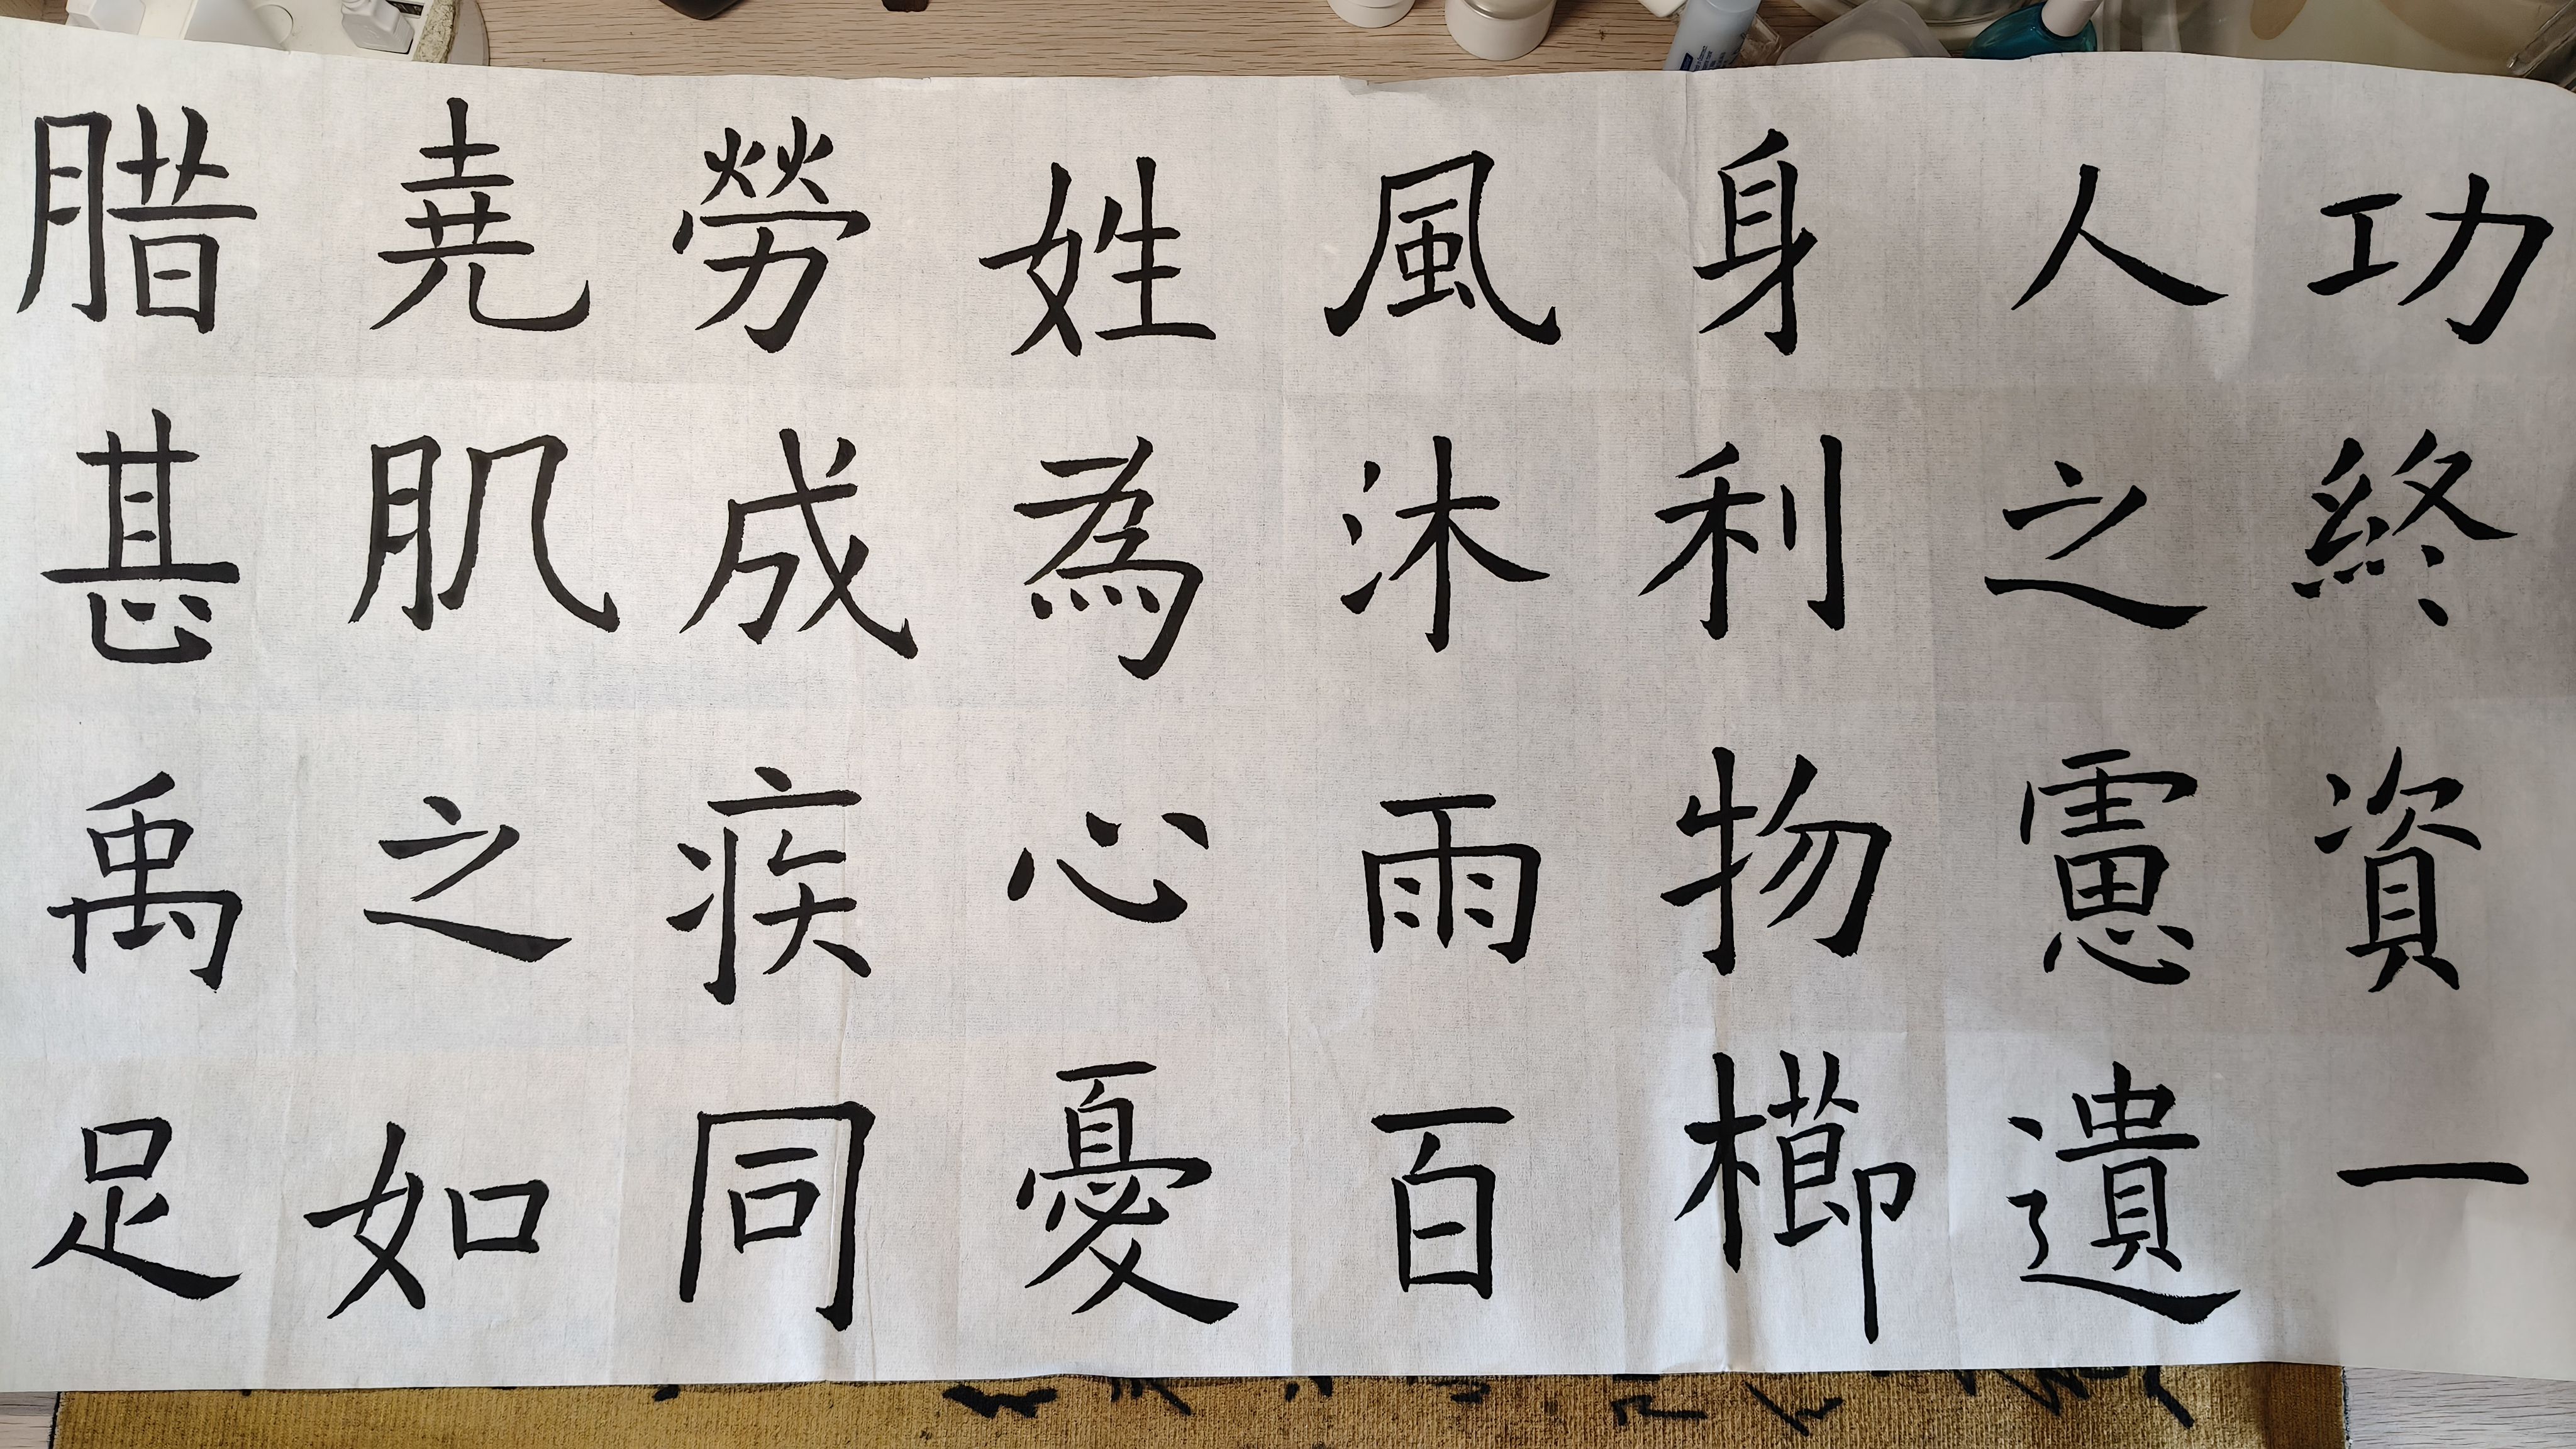 功終資一
人之慮遺
身利物櫛
風沐雨百
姓為心憂
勞成疾同
堯肌之如
腊甚禹足